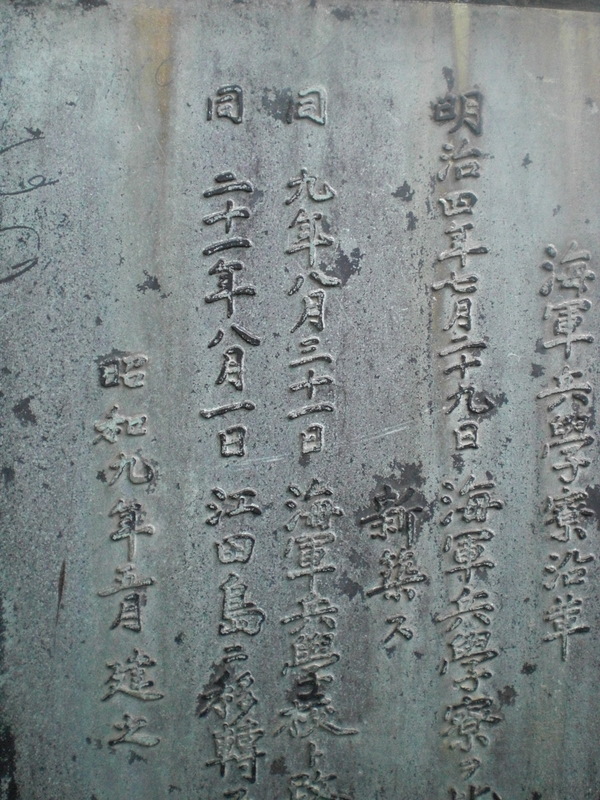 海軍兵學寮沿革
明治四年七月二十九日 海軍兵學寮ヲ
新築ス
同 九年八月三十一日 海軍兵學校ト改
同 二十一年八月一日 江田島ニ移轉ス
昭和九年五月 建之